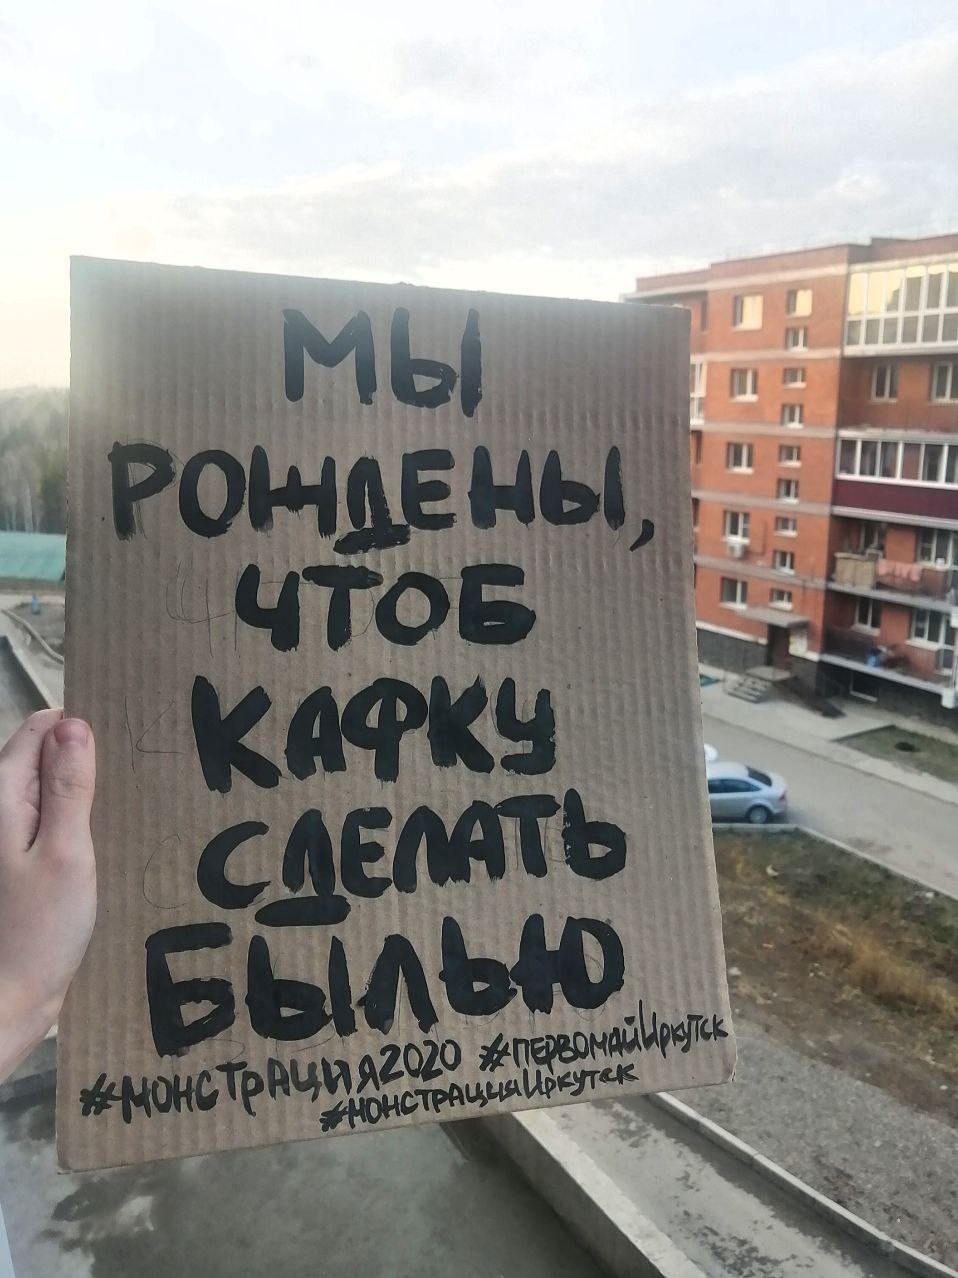 МЫ
РОЖДЕНЫ,
ЧТОБ
КАФКУ
СДЕЛАТЬ
БЫЛЬЮ
#МОНСТРАЦИЯ2020 #ПЕРВОМАЙИРКУТСК
#МОНСТРАЦИЯИРКУТСК